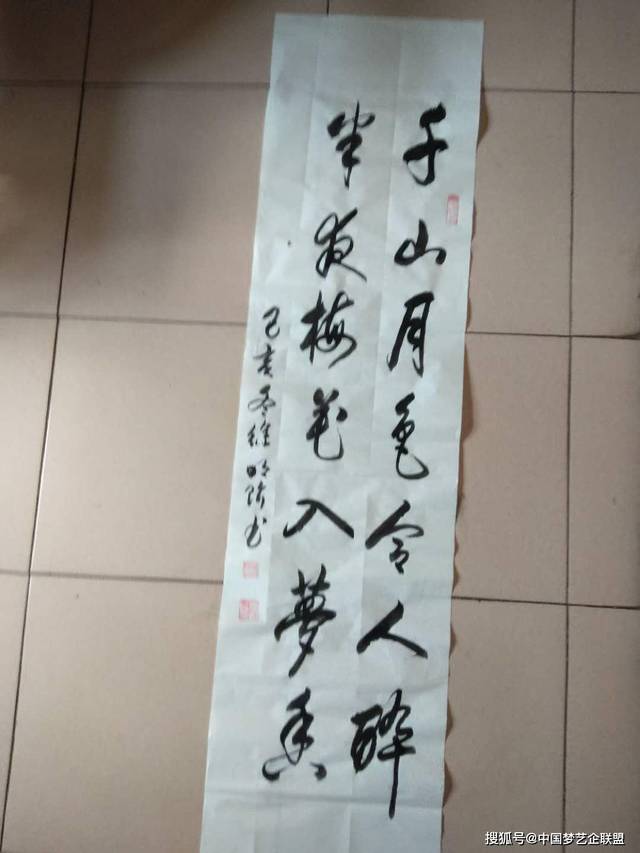 千山月色令人醉
半夜梅花入夢香
己亥冬徐明清书
搜狐号@中国梦艺企联盟